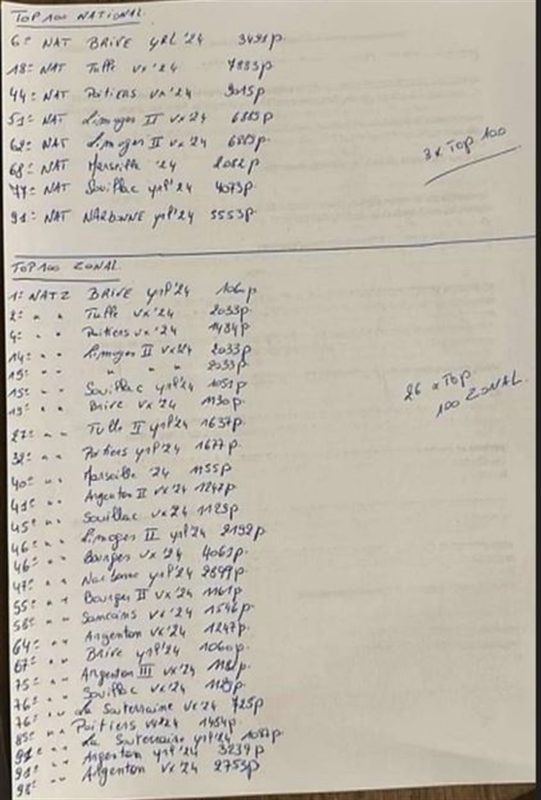 TOP 100 NATIONAL
6= NAT BRIVE yRL '24 3491p.
18= NAT Tulle vx '24 7893p
44= NAT Poitiers vx '24 9015p
51= NAT Limoges II vx '24 6889p
62= NAT Limoges II vx '24 6889p
68= NAT Marseille '24 2082p
77= NAT Souillac yrl '24 4073p
91= NAT NARBONNE yrl '24 5553p
3 x TOP 100
TOP 100 ZONAL
1= NAT Z BRIVE yrl '24 1060p
2= " " Tulle vx '24 2033p
4= " " Poitiers vx '24 1484p
14= " " Limoges II vx '24 2033p
15= " " " " " 2033p
15= " " Souillac yrl '24 1051p
19= " " Brive vx '24 1130p
27= " " Tulle II yrl '24 1637p
32= " " Poitiers yrl '24 1677p
40= " " Marseille '24 1155p
41= " " Argenton II vx '24 1247p
45= " " Souillac vx '24 1129p
46= " " Limoges II yrl '24 2192p
46= " " Bourges vx '24 4061p
47= " " Narbonne yrl '24 2899p
55= " " Bourges II vx '24 1161p
58= " " Sancoins vx '24 1546p
64= " " Argenton vx '24 1247p
67= " " Brive yrl '24 1060p
75= " " Argenton III vx '24
76= " " Souillac vx '24 1129p
76= " " La Souterraine vx '24 725p
85= " " Poitiers vx '24 1484p
91= " " La Souterraine yrl '24 1087p
91= " " Argenton yrl '24 3239p
98= " " Argenton vx '24 2753p
26 x TOP
100 ZONAL